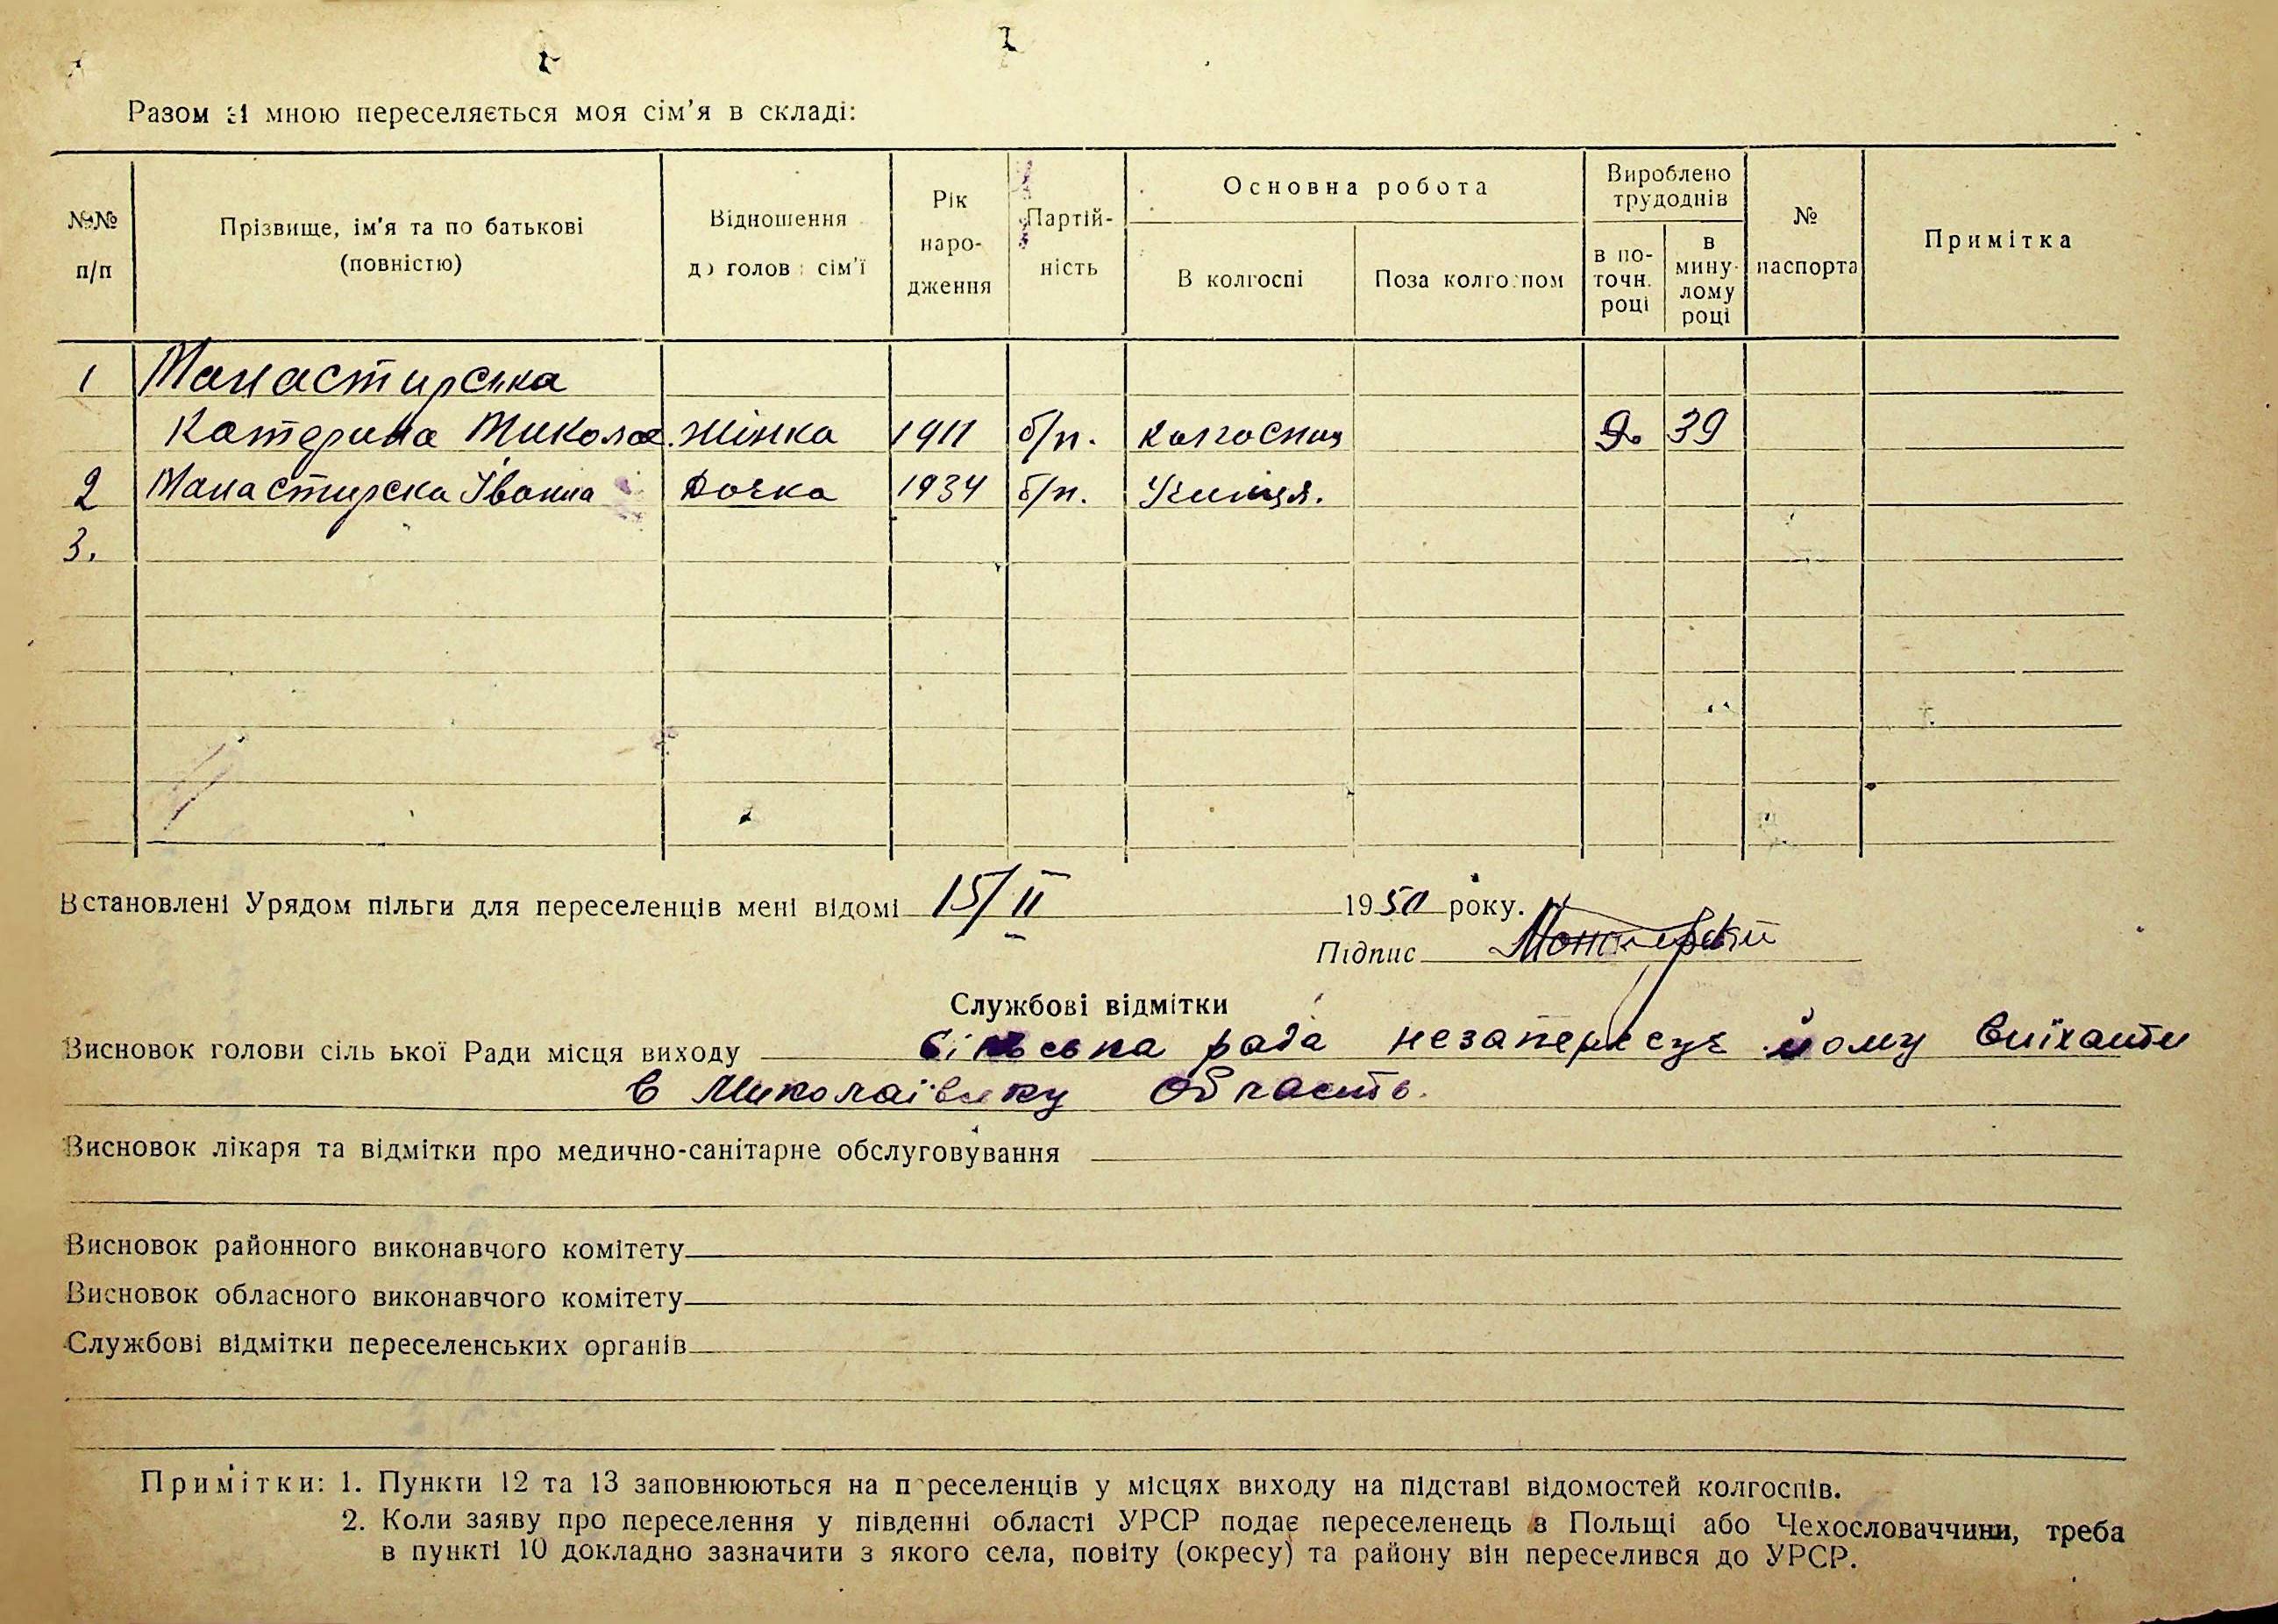 Разом зі мною переселяється моя сім'я в складі:
№№ п/п
Прізвище, ім'я та по батькові (повністю)
Відношення до голови сім'ї
Рік народження
Партійність
Основна робота
В колгоспі
Поза колгоспом
Вироблено трудоднів
в поточн. році
в минулому році
№ паспорта
Примітка
1 Манастирська
Катерина Микола. жінка 1911 б/п. колгосниця 39
2 Манастирска Іванна Дочка 1934 б/п. Учениця.
3.
Встановлені Урядом пільги для переселенців мені відомі 15/II 1950 року.
Підпис
Службові відмітки
Висновок голови сільської Ради місця виходу сільська рада незаперечує йому виїхати
в Миколаївску область.
Висновок лікаря та відмітки про медично-санітарне обслуговування
Висновок районного виконавчого комітету
Висновок обласного виконавчого комітету
Службові відмітки переселенських органів
Примітки: 1. Пункти 12 та 13 заповнюються на переселенців у місцях виходу на підставі відомостей колгоспів.
2. Коли заяву про переселення у південні області УРСР подає переселенець з Польщі або Чехословаччини, треба
в пункті 10 докладно зазначити з якого села, повіту (окресу) та району він переселився до УРСР.